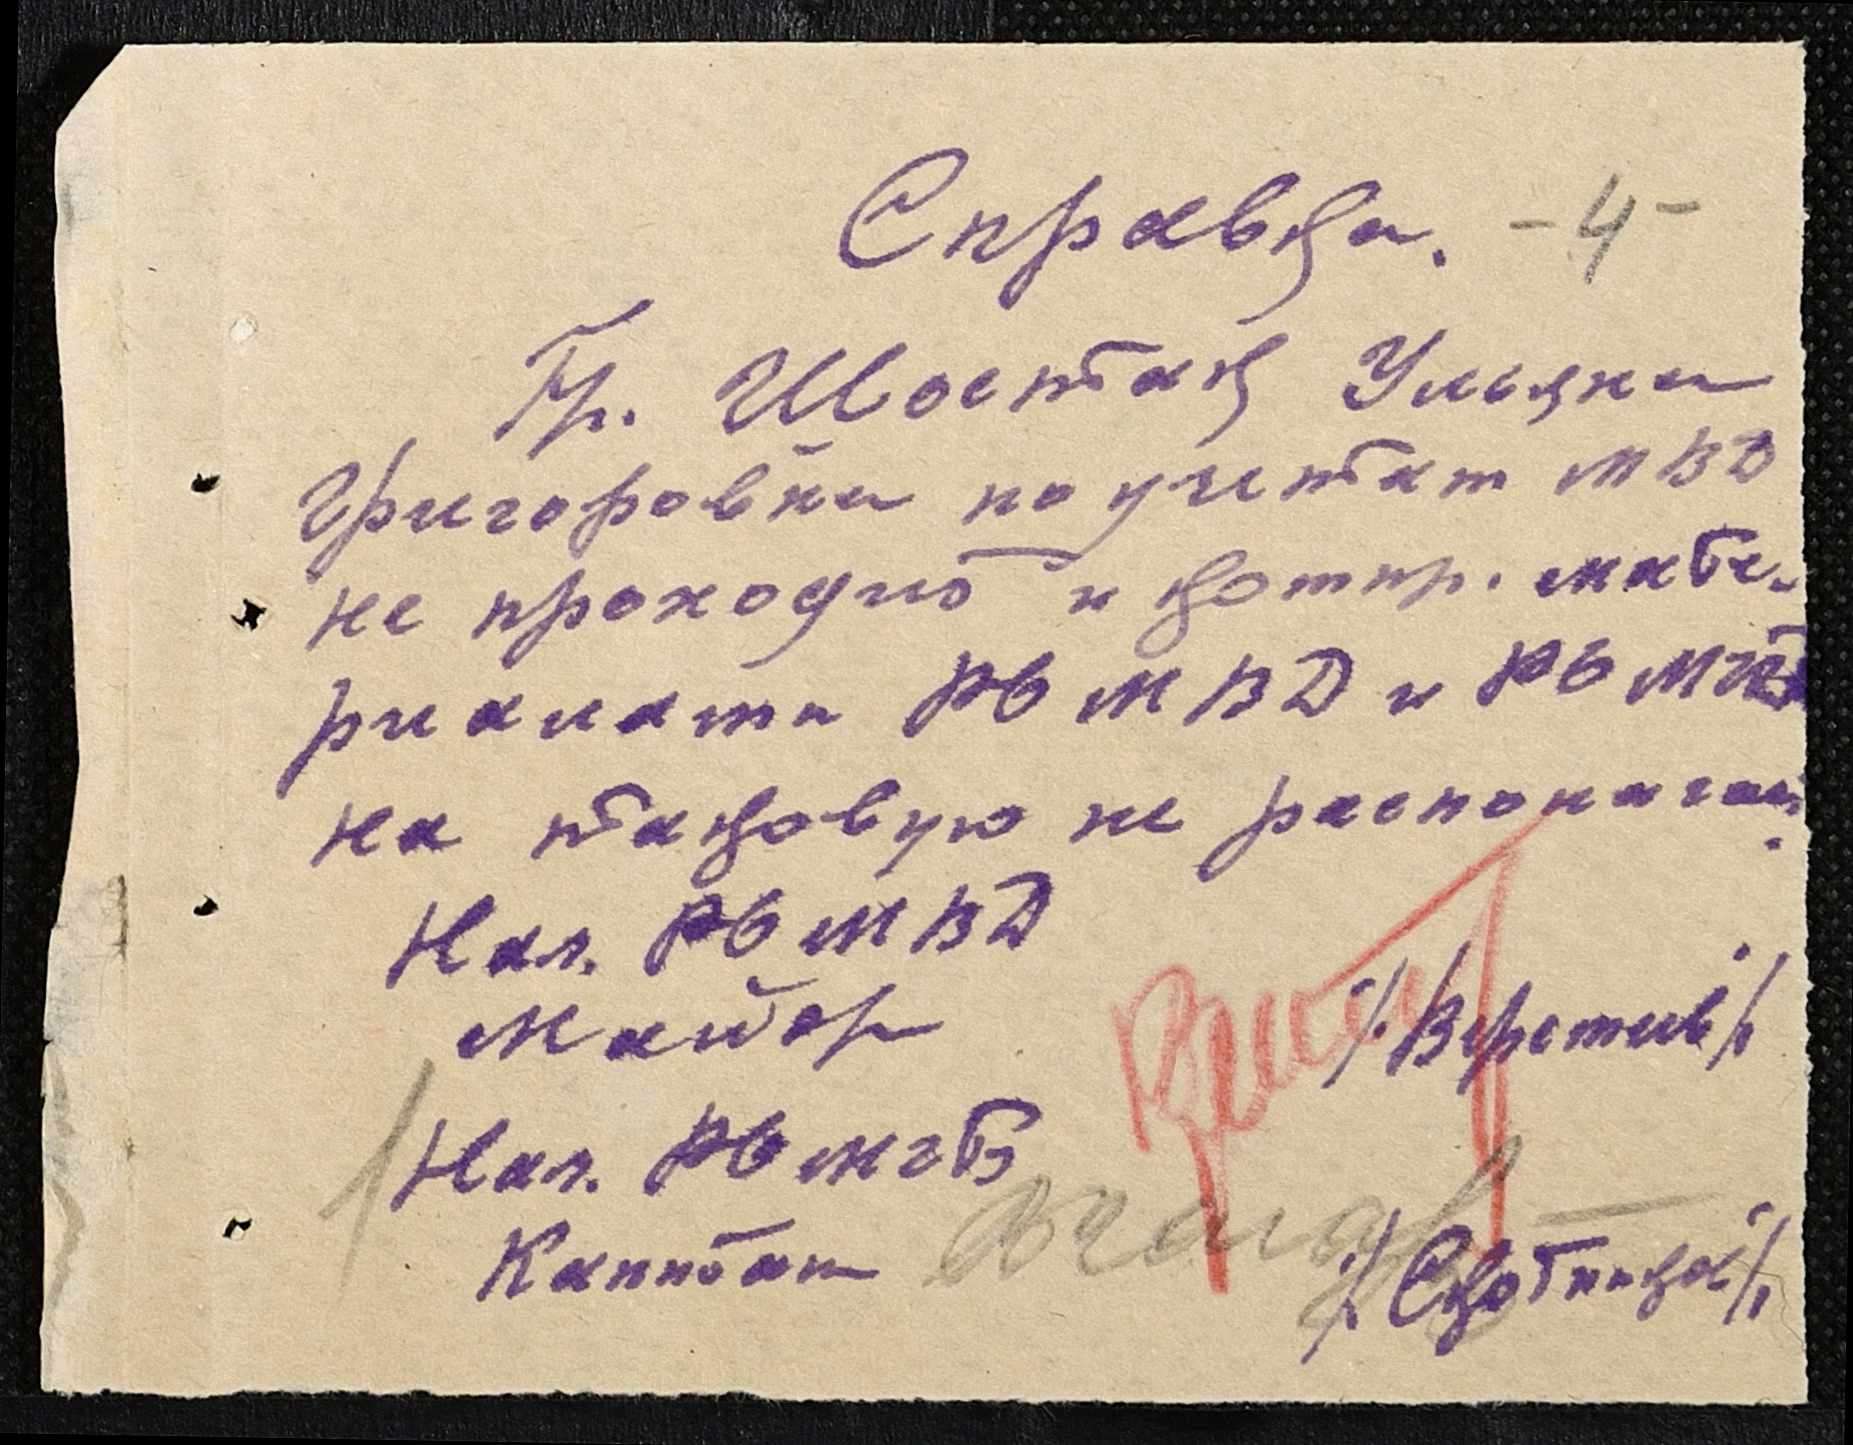 Справка. -4-
Гр. Шостак Ульяна
Григоровна по учетам МВД
не проходит и компр. мате-
риалами РО МВД и РО МГБ
на таковую не располагает.
Нач. РО МВД
Майор /Веретин/
Нач. РО МГБ
Капитан /Скотницкий/